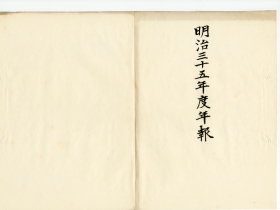 明治三十五年度年報